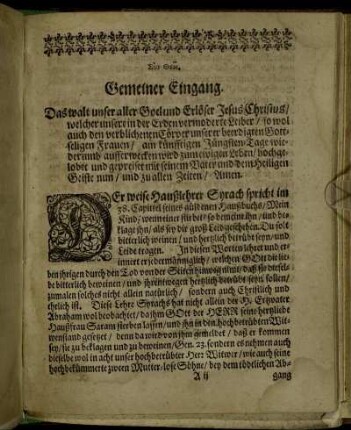 Gemeiner Eingang.
Das walt unser aller Goel und Erlöser Jesus Christus /
welcher unsere in der Erden vermoderte Leiber / so wol
auch den verblichenen Cörper unserer beerdigten Gott-
seligen Frauen / am künfftigen Jüngsten Tage wie-
derumb aufferwecken wird zum ewigen Leben / hochge-
lobet und gepreiset mit seinem Vater und dem Heiligen
Geiste nun / und zu allen Zeiten / Amen.
DEr weise Haußlehrer Syrach spricht im
38. Capitel seines güldenen Haußbuchs / Mein
Kind / wenn einer stirbet / so beweine ihn / und be-
klage ihn / als sey dir groß Leid geschehen. Du solt
bitterlich weinen / und hertzlich betrübt seyn / und
Leide tragen. In diesen Worten lehret und er-
innert er jedermänniglich / welchen GOtt die lie-
ben ihrigen durch den Tod von der Seiten hinweg nimt / daß sie dieselbe
bitterlich beweinen / und ihrentwegen hertzlich betrübt seyn sollen /
zumalen solches nicht allein natürlich / sondern auch Christlich und
ehrlich ist. Diese Lehre Syrachs hat nicht allein der H. Ertzvater
Abraham wol beobachtet / da ihm GOtt der HERR seine hertzliebe
Haußfrau Saram sterben lassen / und ihn in den hochbetrübten Wit-
wenstand gesetzet / denn da wird von ihm gemeldet / daß er kommen
sey / sie zu beklagen und zu beweinen / Gen. 23. sondern es nehmen auch
dieselbe wol in acht unser hochbetrübter Herr Witwer / wie auch seine
hochbekümmerte zween Mutter-lose Söhne / bey dem tödlichen Ab-
A ij gang